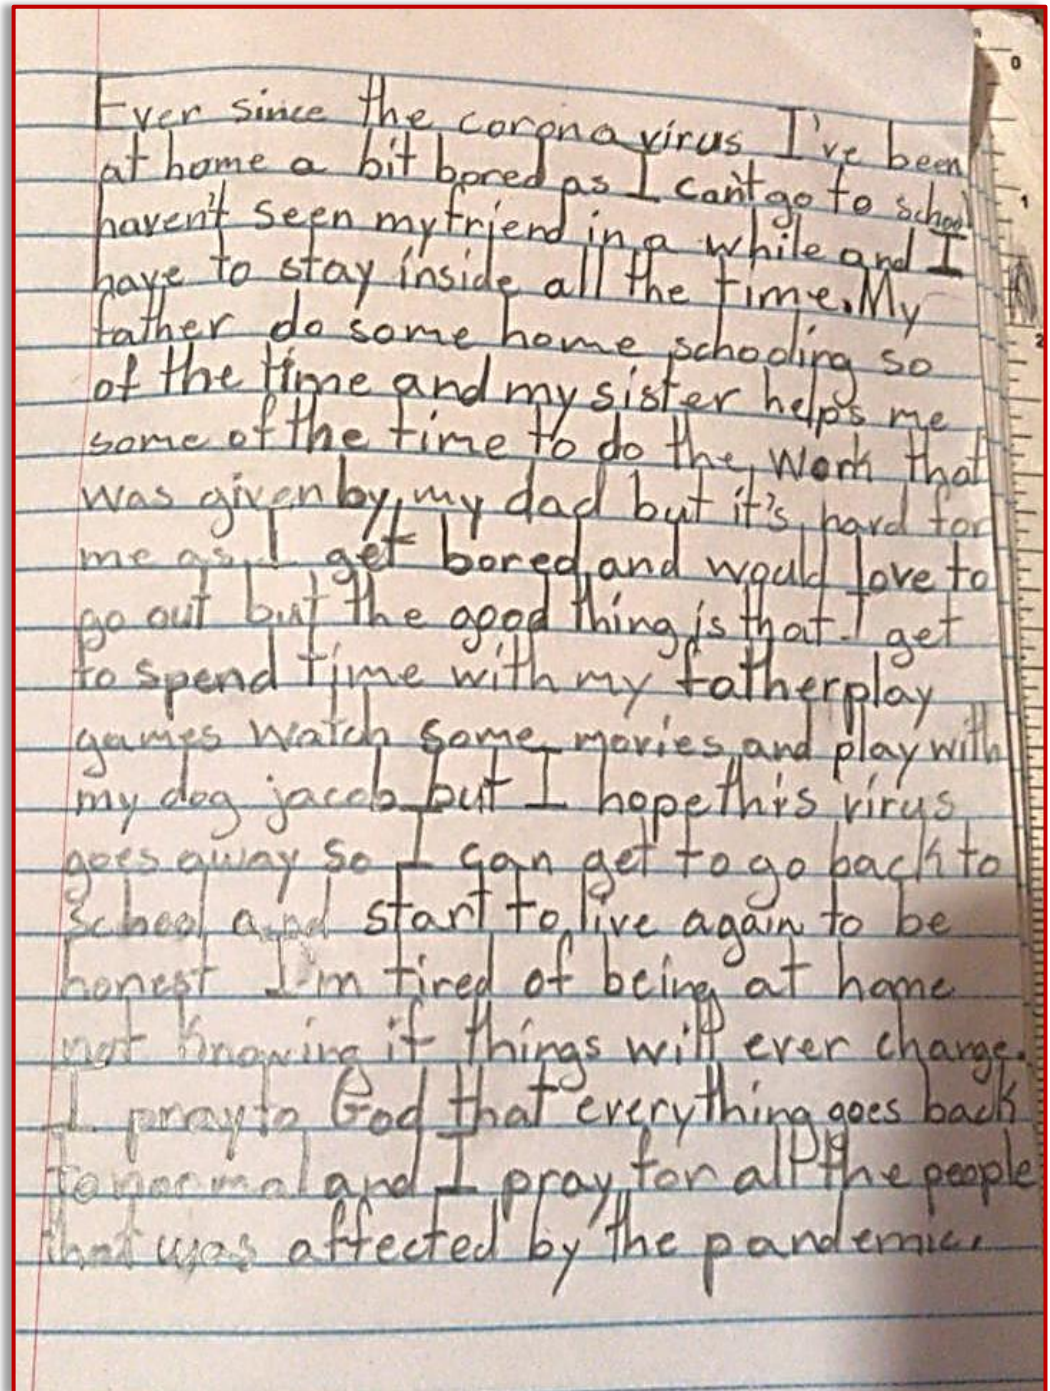 Ever since the corona virus I've been
at home a bit bored as I can't go to school
haven't seen my friend in a while and I
have to stay inside all the time. My
father do some home schooling so
of the time and my sister helps me
some of the time to do the work that
was given by my dad but it's hard for
me as I get bored and would love to
go out but the good thing is that I get
to spend time with my father play
games watch some movies and play with
my dog jacob but I hope this virus
goes away so I can get to go back to
school and start to live again to be
honest I'm tired of being at home
not knowing if things will ever change.
I pray to God that everything goes back
to normal and I pray for all the people
that was affected by the pandemic.
0
1
2